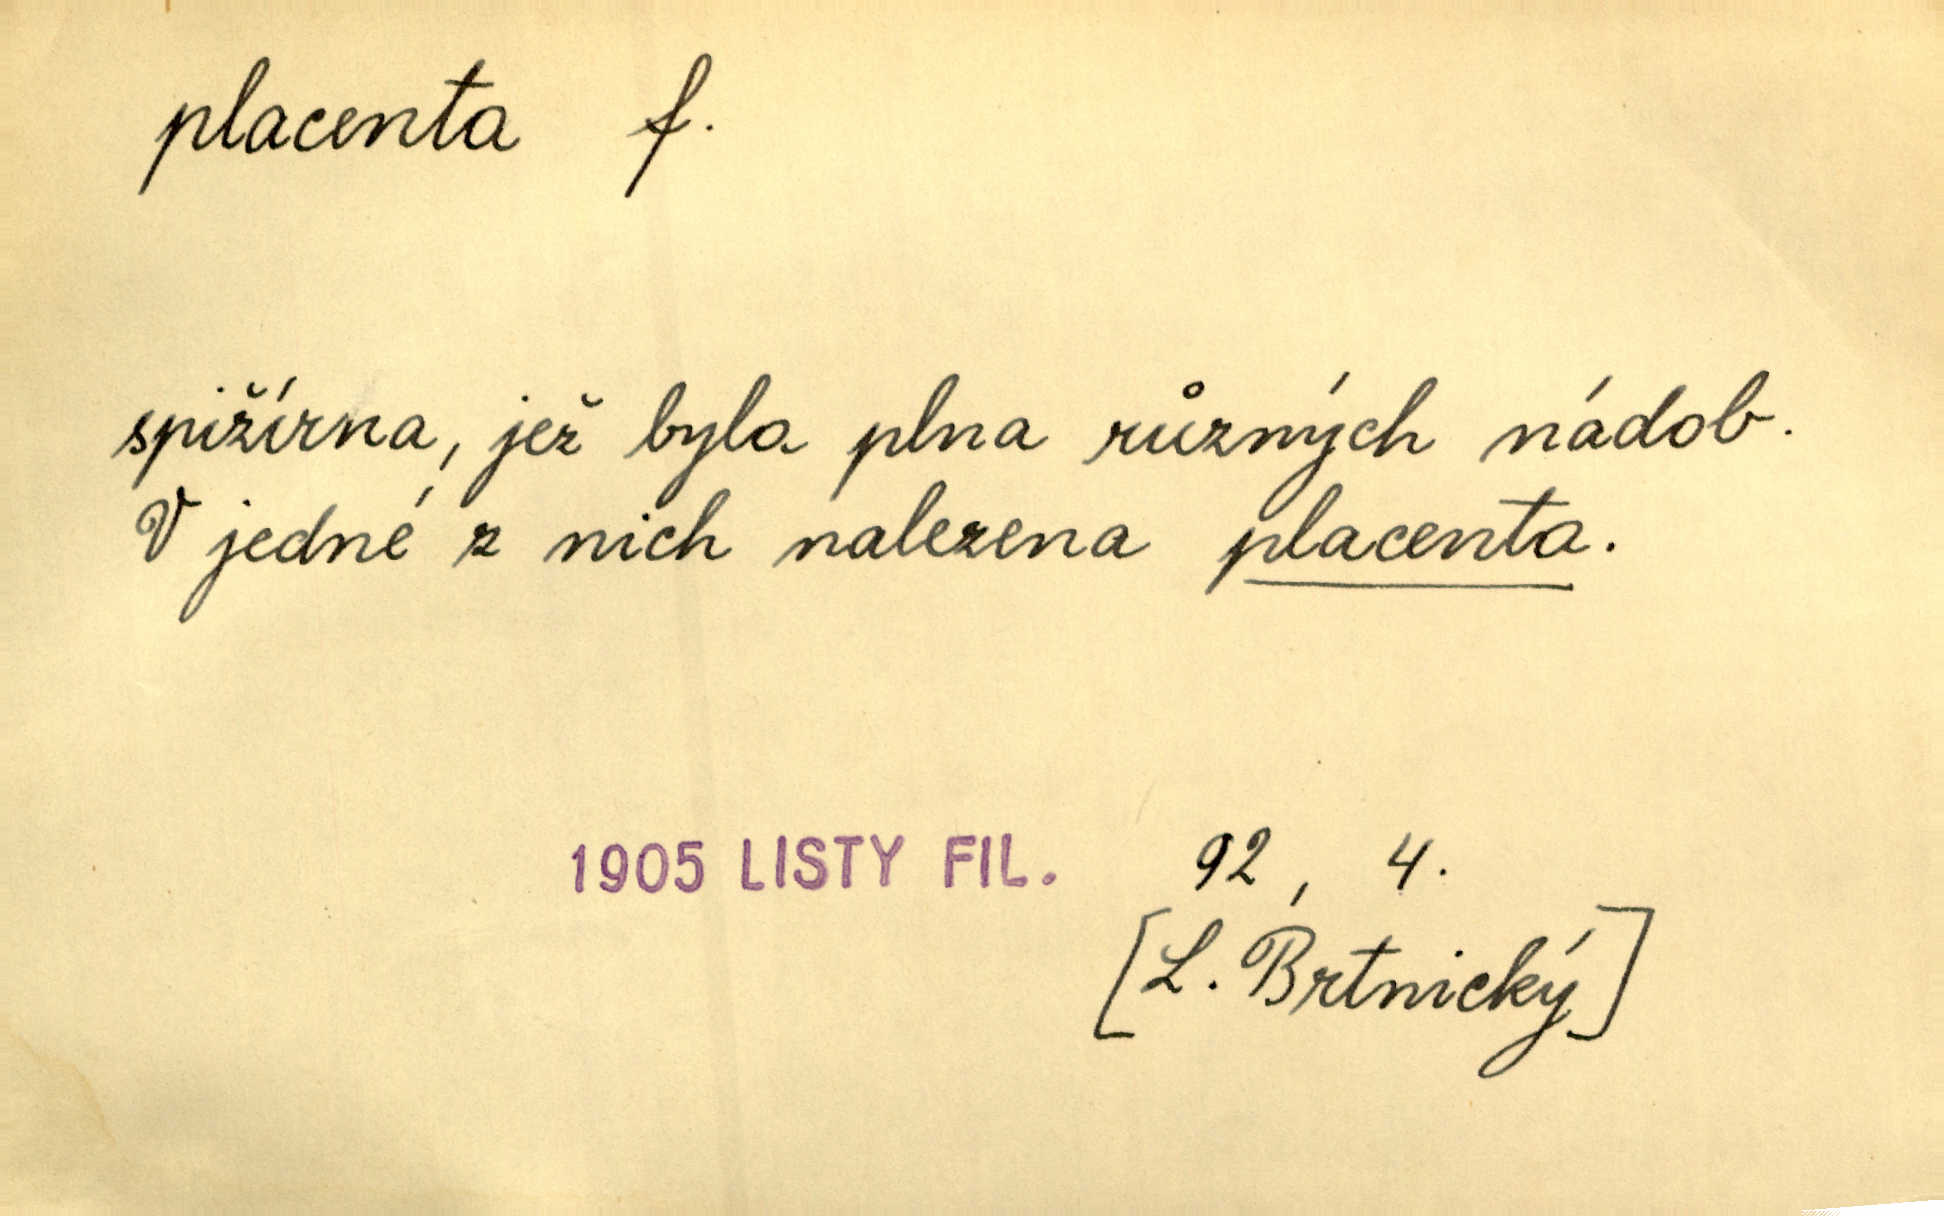 placenta f.
spižírna, jež byla plna různých nádob.
V jedné z nich nalezena placenta.
1905 LISTY FIL. 92, 4.
[L. Brtnický]